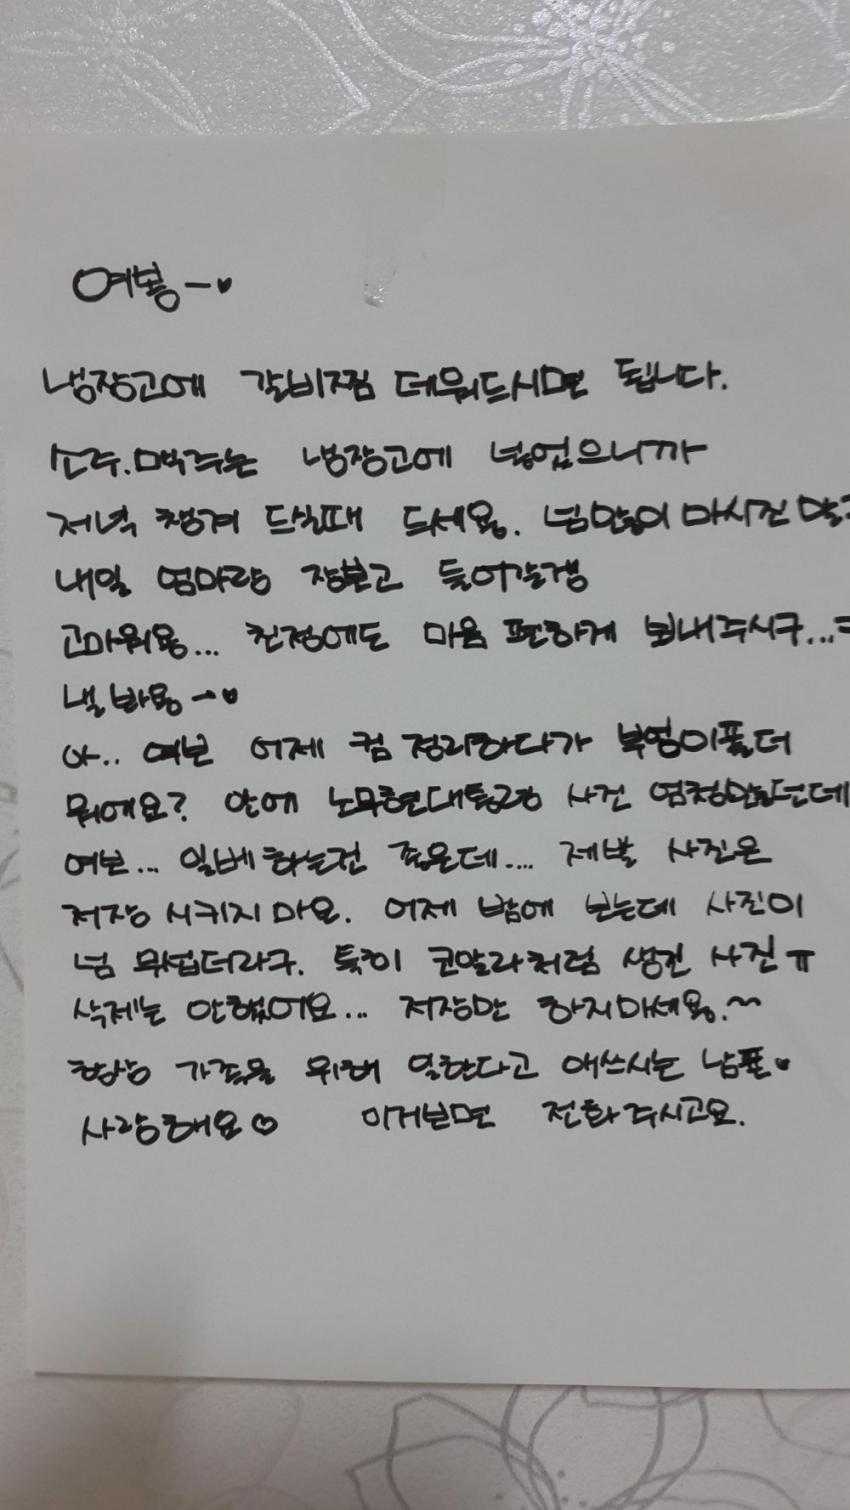 여봉~♥
냉장고에 갈비찜 데워드시면 됩니다.
소주.맥주는 냉장고에 넣었으니까
저녁 챙겨 드실때 드세용. 넘많이 마시진 말구
내일 엄마랑 장보고 들어갈갱
고마워용... 친정에도 마음 편하게 보내주시구...
낼 봐용~♥
아.. 여보 어제 컴 정리하다가 부엉이폴더
뭐에요? 안에 노무현대통령 사진 엄청많던데
여보... 일베하는건 좋은데... 제발 사진은
저장 시키지 마요. 어제 밤에 보는데 사진이
넘 무섭더라구. 특히 코알라처럼 생긴 사진ㅠ
삭제는 안했어요... 저장만 하지마세용.~
항상 가족을 위해 일한다고 애쓰시는 남편♥
사랑해요♡ 이거보면 전화주시고요.